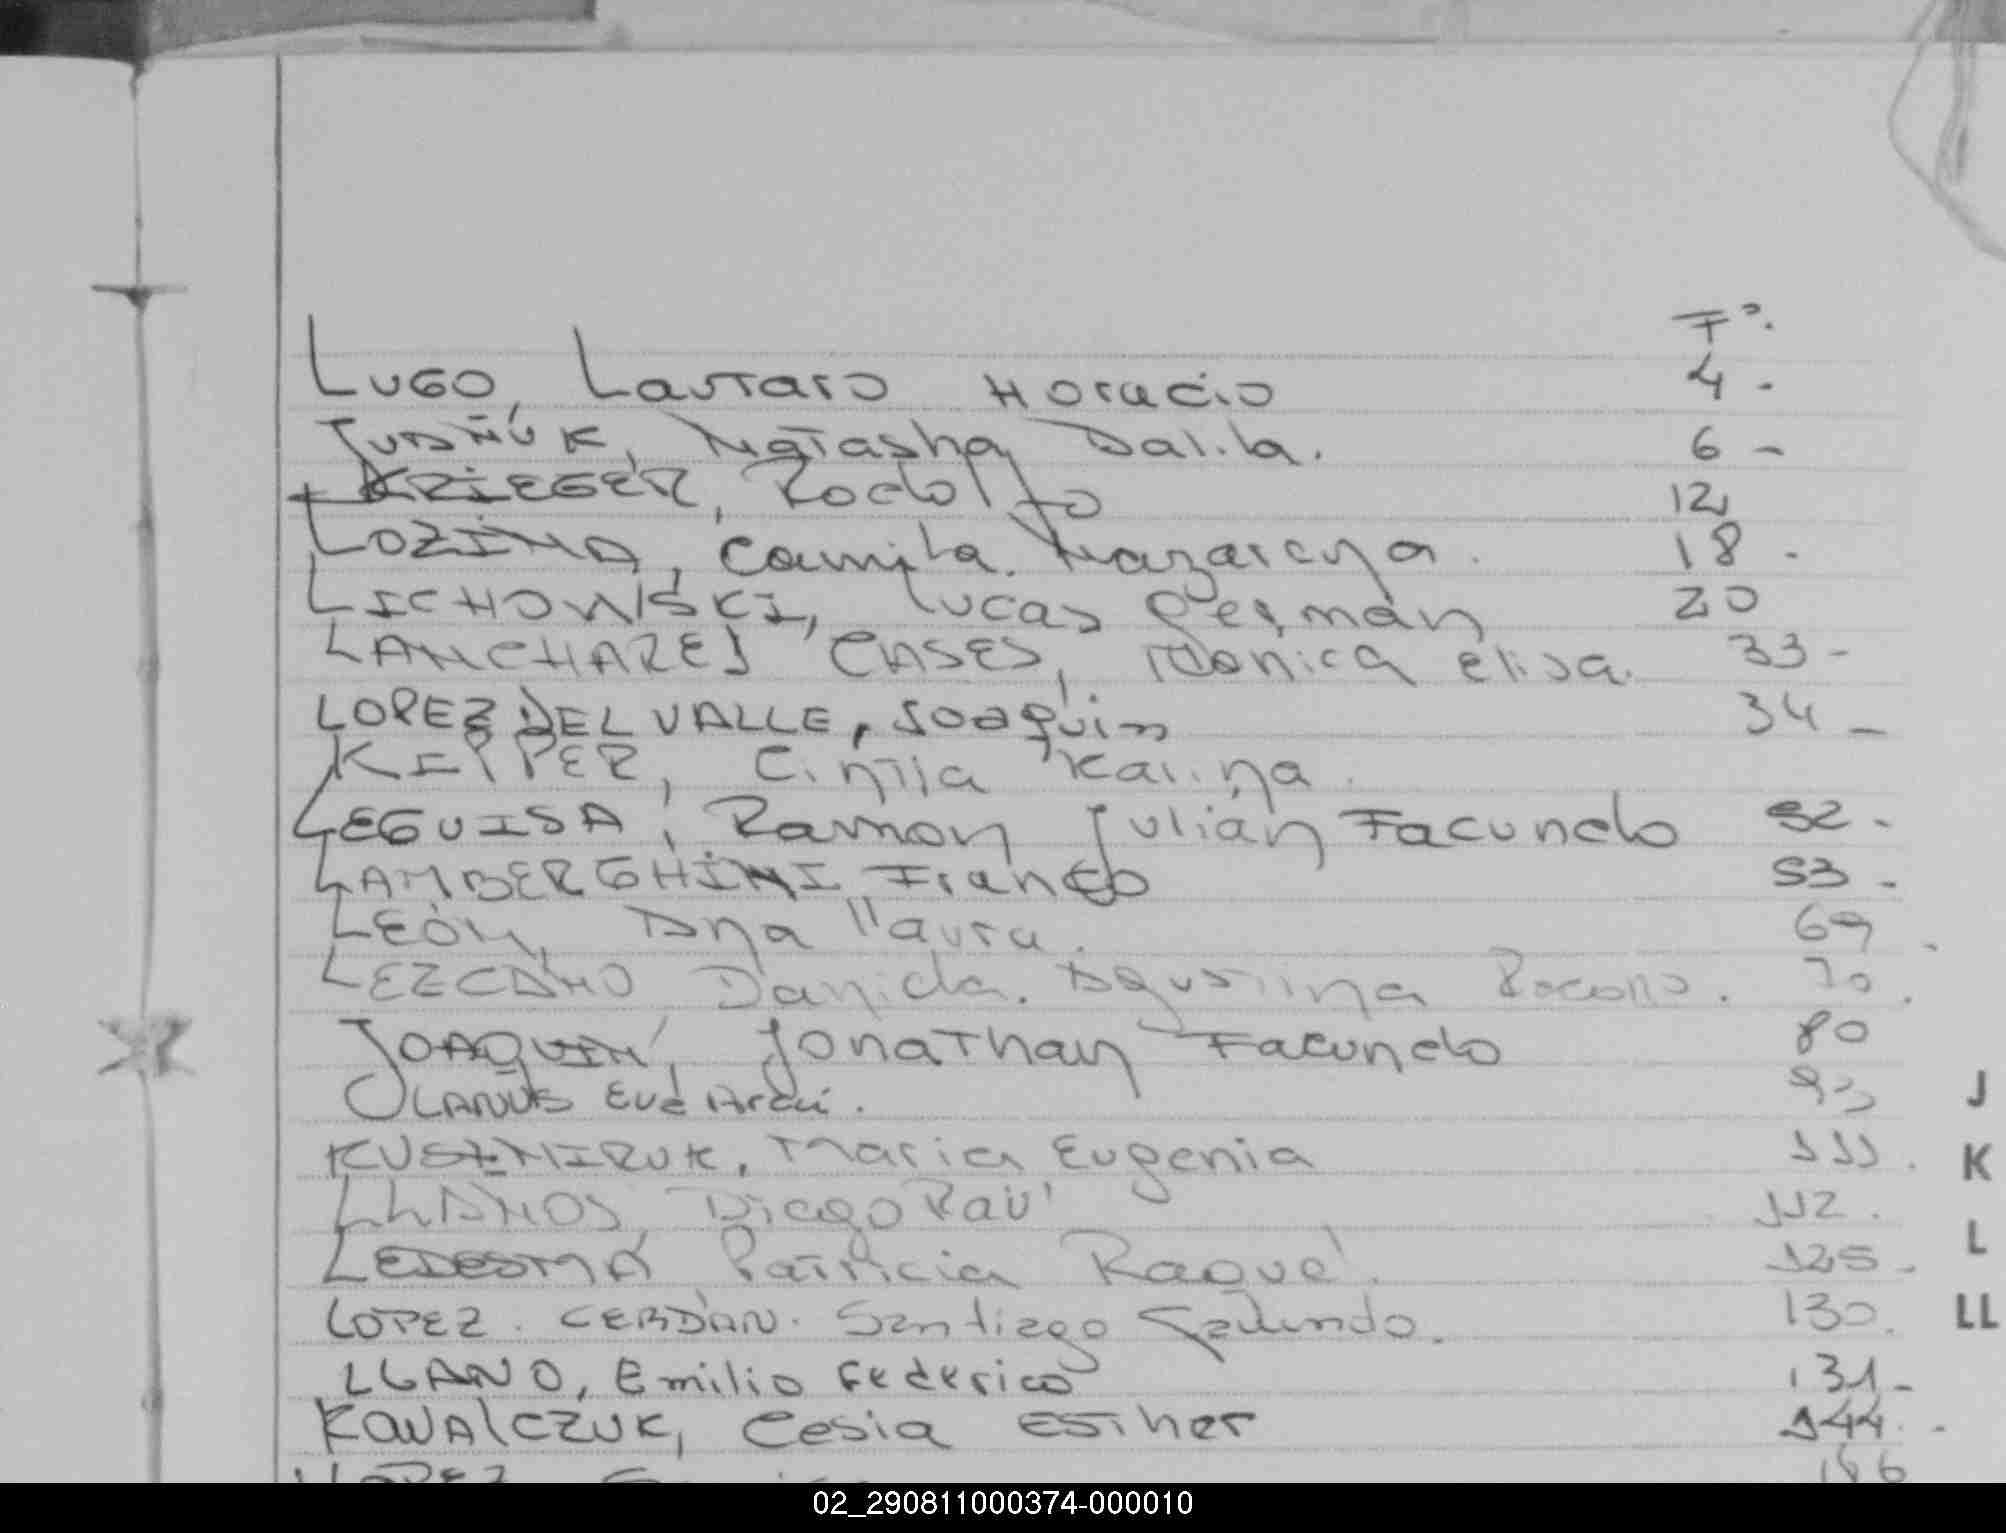 Fº.
LUGO, Lautaro Horacio 4 -
Natasha Dalila. 6 -
KRIEGER, Rodolfo 12
LOZINA, Camila Nazarena. 18 -
LICHOWISKI, Lucas Germán 20
LANCHARES CASES, Monica Elisa. 33 -
LOPEZ DEL VALLE, Joaquin 34 -
KIPPER, Cintia Karina.
LEGUISA, Ramon Julián Facundo 52 -
LAMBERGHINI, Franco 53 -
LEÓN, Ana Maura. 69 -
LEZCANO Daniela. Agustina Rocono. 70.
JOAQUIN, Jonathan Facundo 80
LANÚS Eve Araí. 93
KUSZMIRUK, Maria Eugenia 111.
LLANOS, Diego Raúl 112.
LEDESMA Patricia Raquel. 125.
LOPEZ. CERDÁN. Santiago Facundo. 130.
LLANO, Emilio Federico 131 -
KOWALCZUK, Cesia Esther 144. -
LOPEZ
J
K
L
LL
02_290811000374-000010